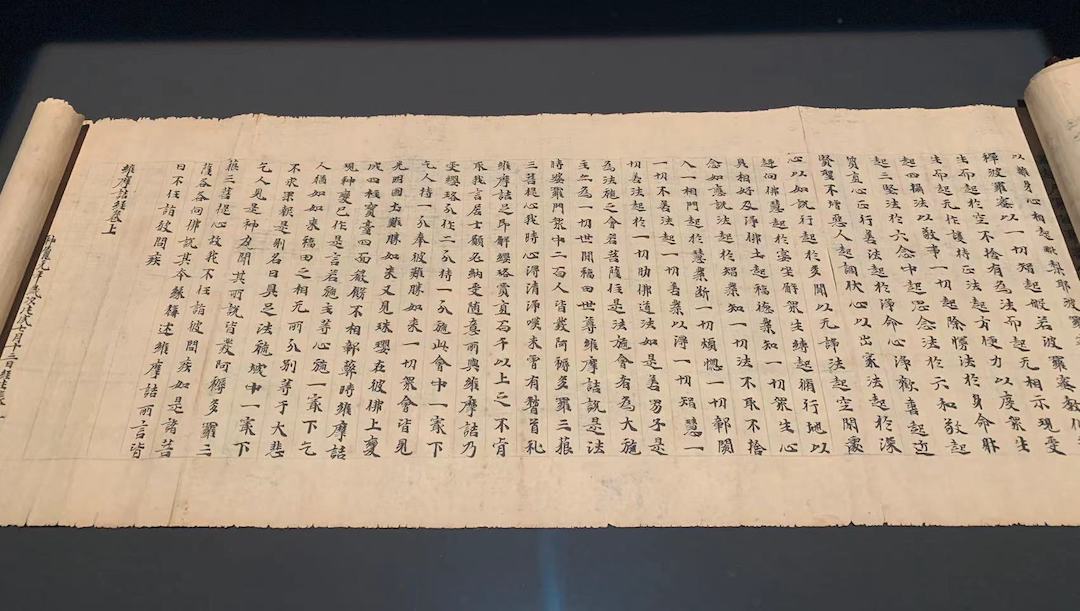 以離身心相起毗梨耶波羅
禪波羅蜜以一切智起般若波羅蜜教化
生而起於空不捨有為法而起无相示現受
生而起无作護持正法起方便力以度衆生
起四攝法以敬事一切起除憍法於身命財
起三堅法於六念中起思念法於六和敬起
質直心正行善法起於淨命心淨歡喜起近
賢聖不增惡人起調伏心以出家法起於深
心以如說行起於多聞以无諍法起空閑處
趣向佛慧起於宴坐解衆生縛起修行地以
具相好及淨佛土起福德業知一切衆生心
念如應說法起於智業知一切法不取不捨
入一相門起於慧業斷一切煩惱一切鄣閡
一切不善法起一切善業以得一切智慧一
切善法起於一切助佛道法如是善男子是
為法施之會若菩薩住是法施會者為大施
主亦為一切世間福田世尊維摩詰說是法
時婆羅門衆中二百人皆發阿耨多羅三藐
三菩提心我時心得清淨嘆未曾有稽首礼
維摩詰足即解瓔珞價直百千以上之不肯
取我言居士願必納受隨意所與維摩詰乃
受瓔珞分作二分持一分施此會中一最下
乞人持一分奉彼難勝如來一切衆會皆見
光明國土難勝如來又見珠瓔在彼佛上變
成四柱寶臺四面嚴飾不相鄣蔽時維摩詰
現神變已作是言若施主等心施一最下乞
人猶如如來福田之相无所分別等于大悲
不求果報是則名曰具足法施城中一最下
乞人見是神力聞其所說皆發阿耨多羅三
藐三菩提心故我不任詣彼問疾如是諸菩
薩各各向佛說其本緣稱述維摩詰所言皆
曰不任詣彼問疾
維摩詰經卷上
年歲次戊戌七月十三日經